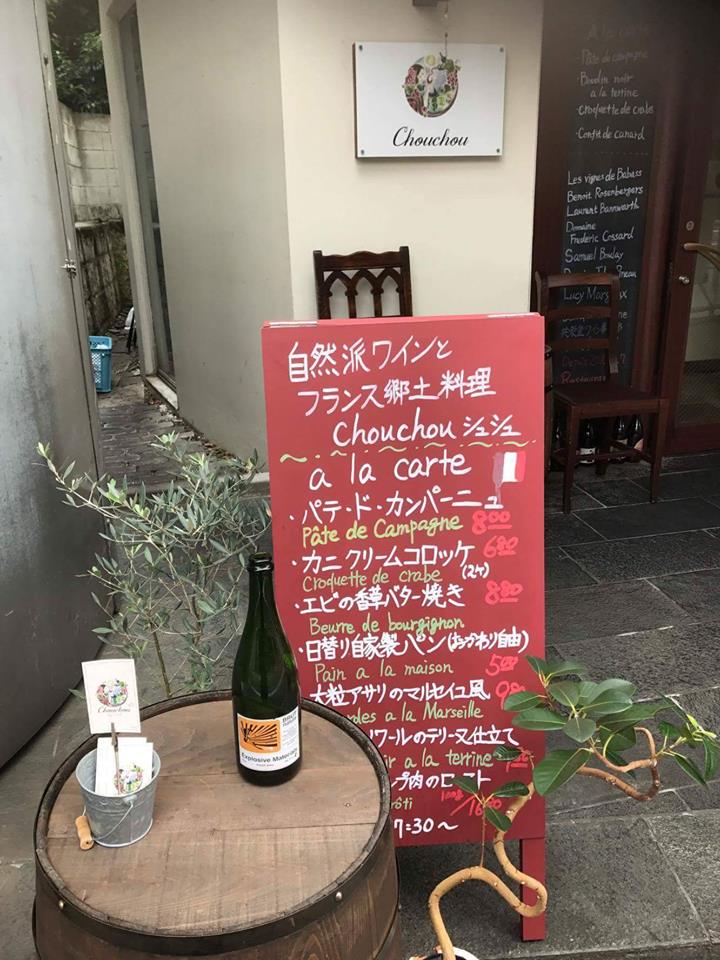 Chouchou
A la carte
·Pâte de campagne
·Boudin noir
a la terrine
·Croquette de crabe
·Confit de canard
Les vignes de Babass
Benoit Rosenbergers
Laurent Bannwarth
Domaine
Frederic Cossard
Samuel Bouday
Lucy Mar
自然派ワインと
フランス郷土料理
chouchou シュシュ
a la carte
・パテ・ド・カンパーニュ
Pâte de Campagne 800
・カニクリームコロッケ
Croquette de crabe (2ケ) 680
・エビの香草バター焼き
Beurre de bourgignon 880
・日替り自家製パン(おかわり自由)
Pain a la maison 500
大粒アサリのマルセイユ風
des a la Marseille
ワールのテリーヌ仕立て
ir a la terrine
プ肉のロースト
rôti
7:30〜
Explosive Materials